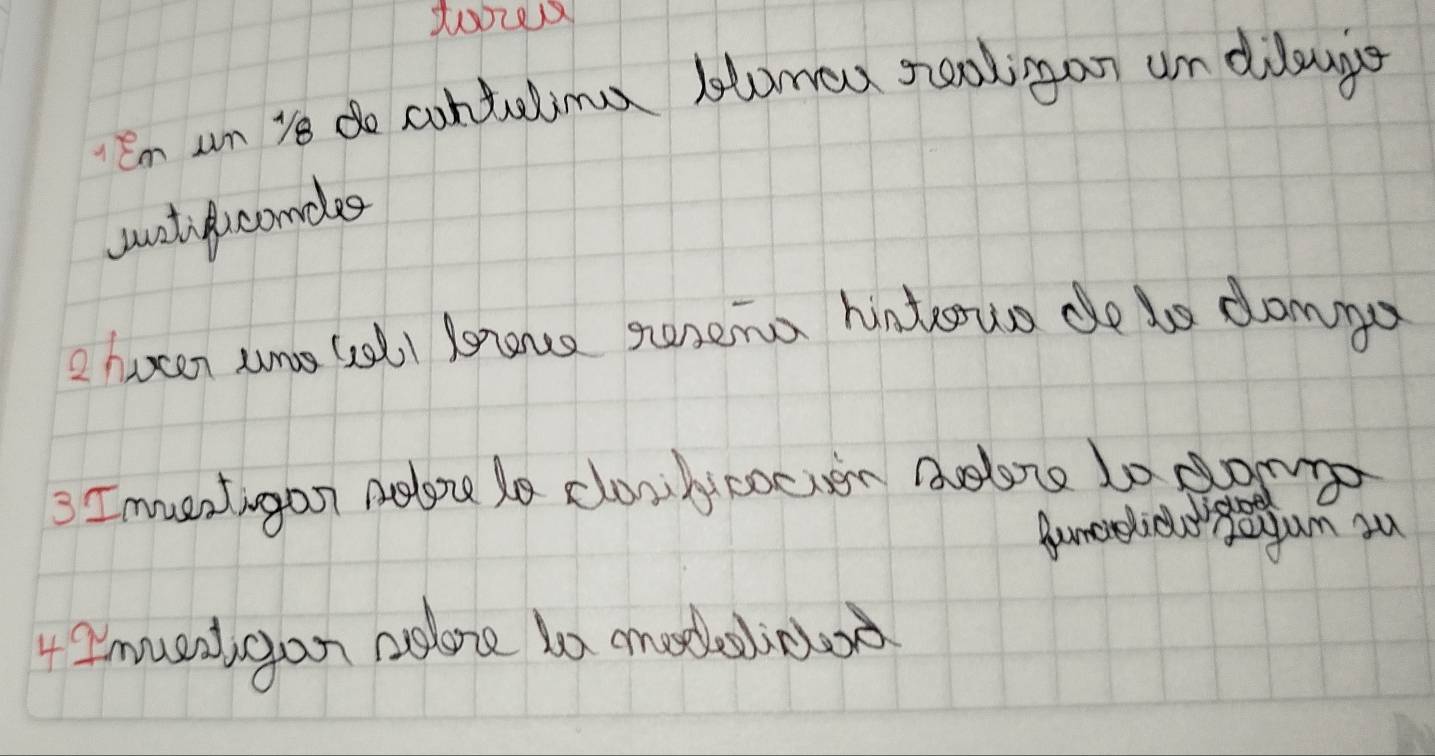 tarea
1 En un 1/8 de cartulina blanca realizar un dibujo
justificando
2 hacer una breve reseña historia de la danza
3 Investigar sobre la clasificación sobre la danza
según su
4 Investigar sobre la modalidad